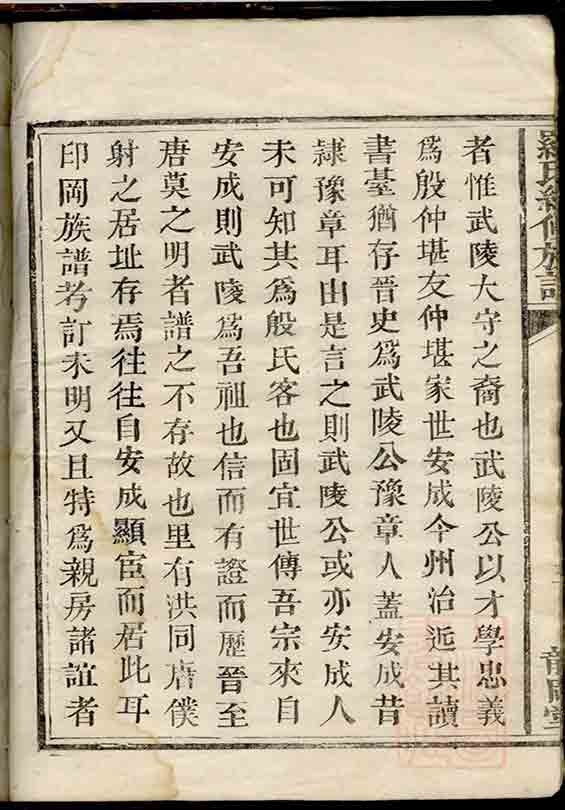 羅氏續修族譜
者惟武陵大守之裔也武陵公以才學忠義
爲殷仲堪友仲堪家世安成今州治近其讀
書臺猶存晉史爲武陵公豫章人蓋安成昔
隸豫章耳由是言之則武陵公或亦安成人
未可知其爲殷氏客也固宜世傳吾宗來自
安成則武陵爲吾祖也信而有證而歷晉至
唐莫之明者譜之不存故也里有洪同唐僕
射之居址存焉往往自安成顯宦而居此耳
印岡族譜考訂未明又且特爲親房諸誼者